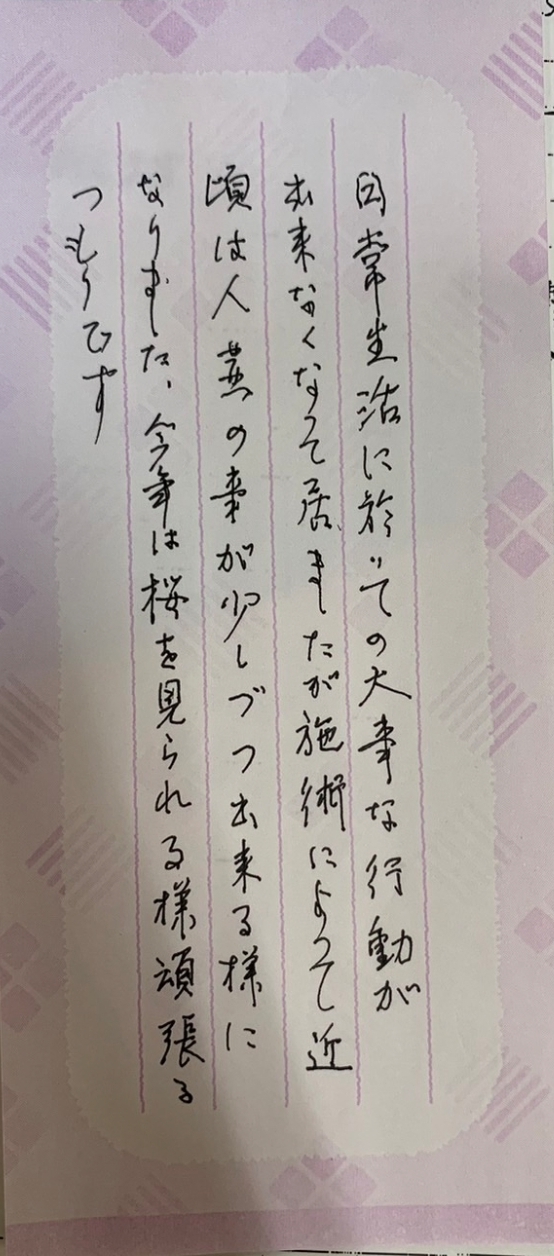 日常生活に於いての大事な行動が
出来なくなって居ましたが施術によって近
頃は人並の事が少しづつ出来る様に
なりました、今年は桜を見られる様頑張る
つもりです